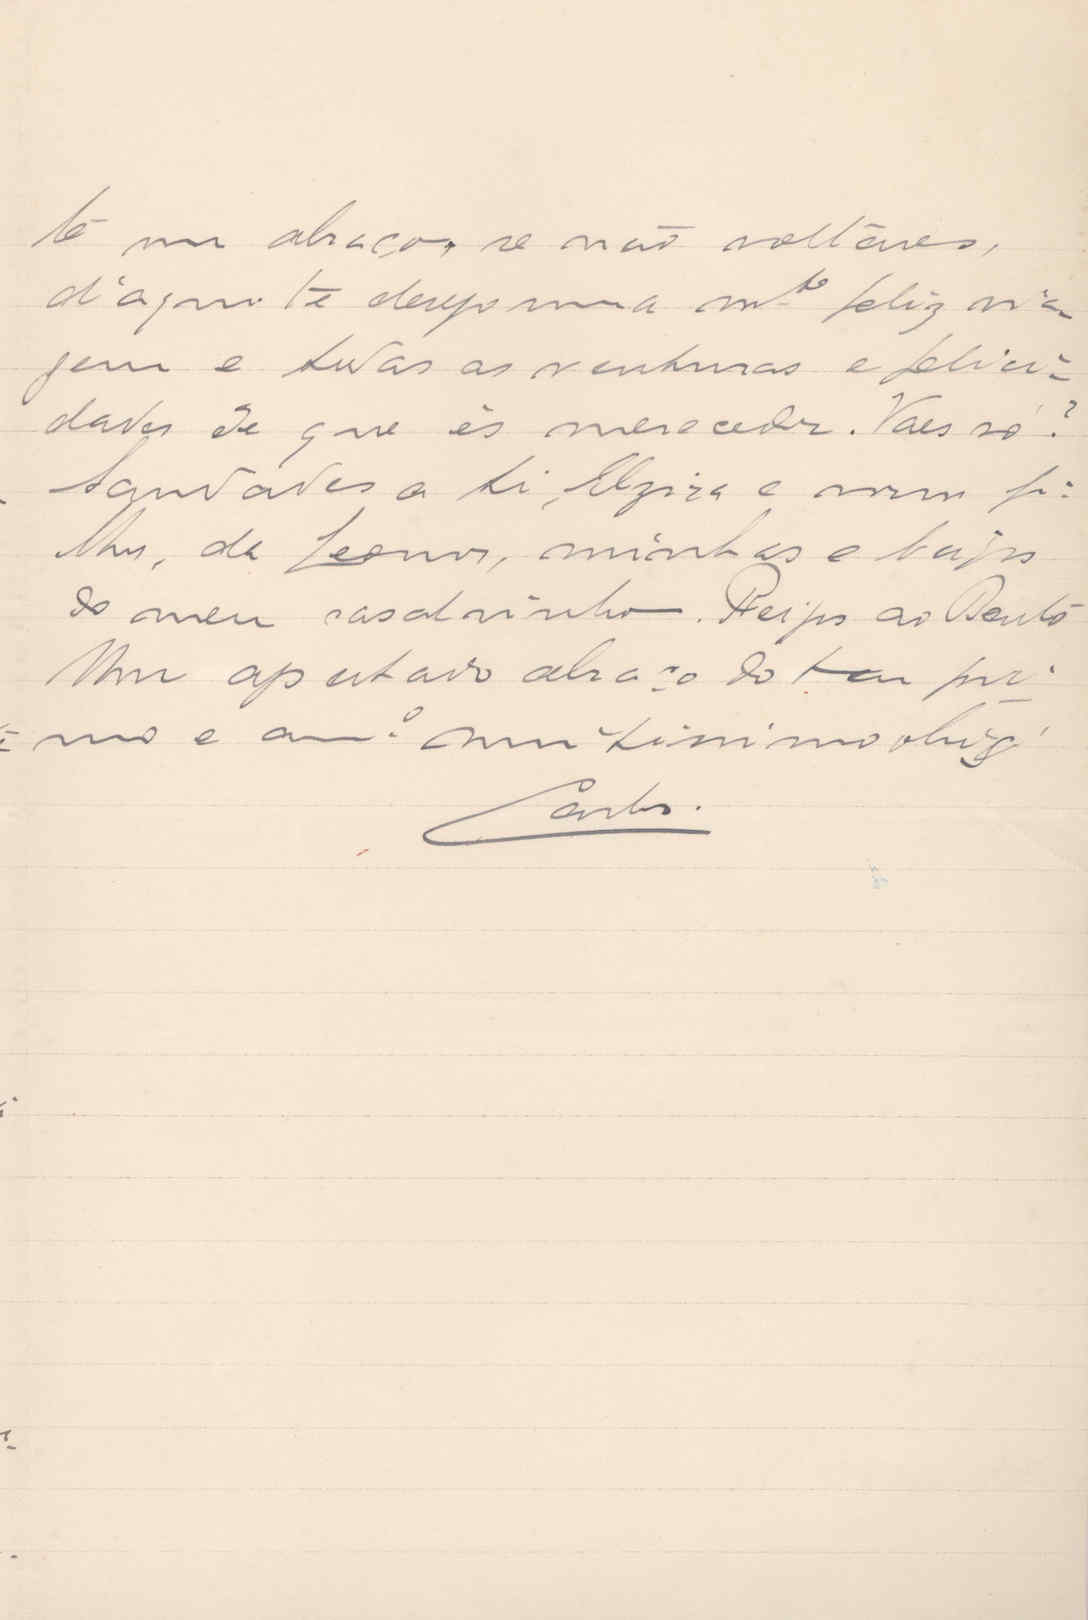 te um abraço, se não voltares,
d'aqui te desejo uma mto feliz via-
gem e todas as venturas e felici-
dades de que és merecedor. Vaes só?
Saudades a ti, Elzira e  fi-
lhos, da Leonor, minhas e beijos
do meu casalzinho. Beijos ao Bento
Um apertado abraço do teu pri-
mo e amo muitissimo obrigo
Carlos.